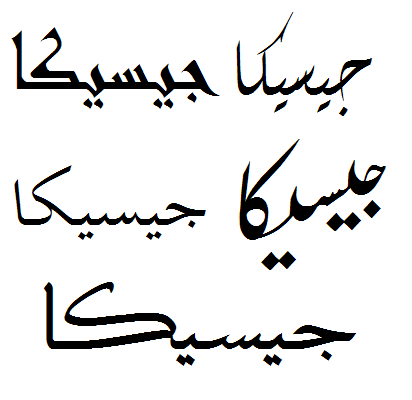 جيسيكا جيسيكا
جيسيكا جيسيكا
جيسيكا